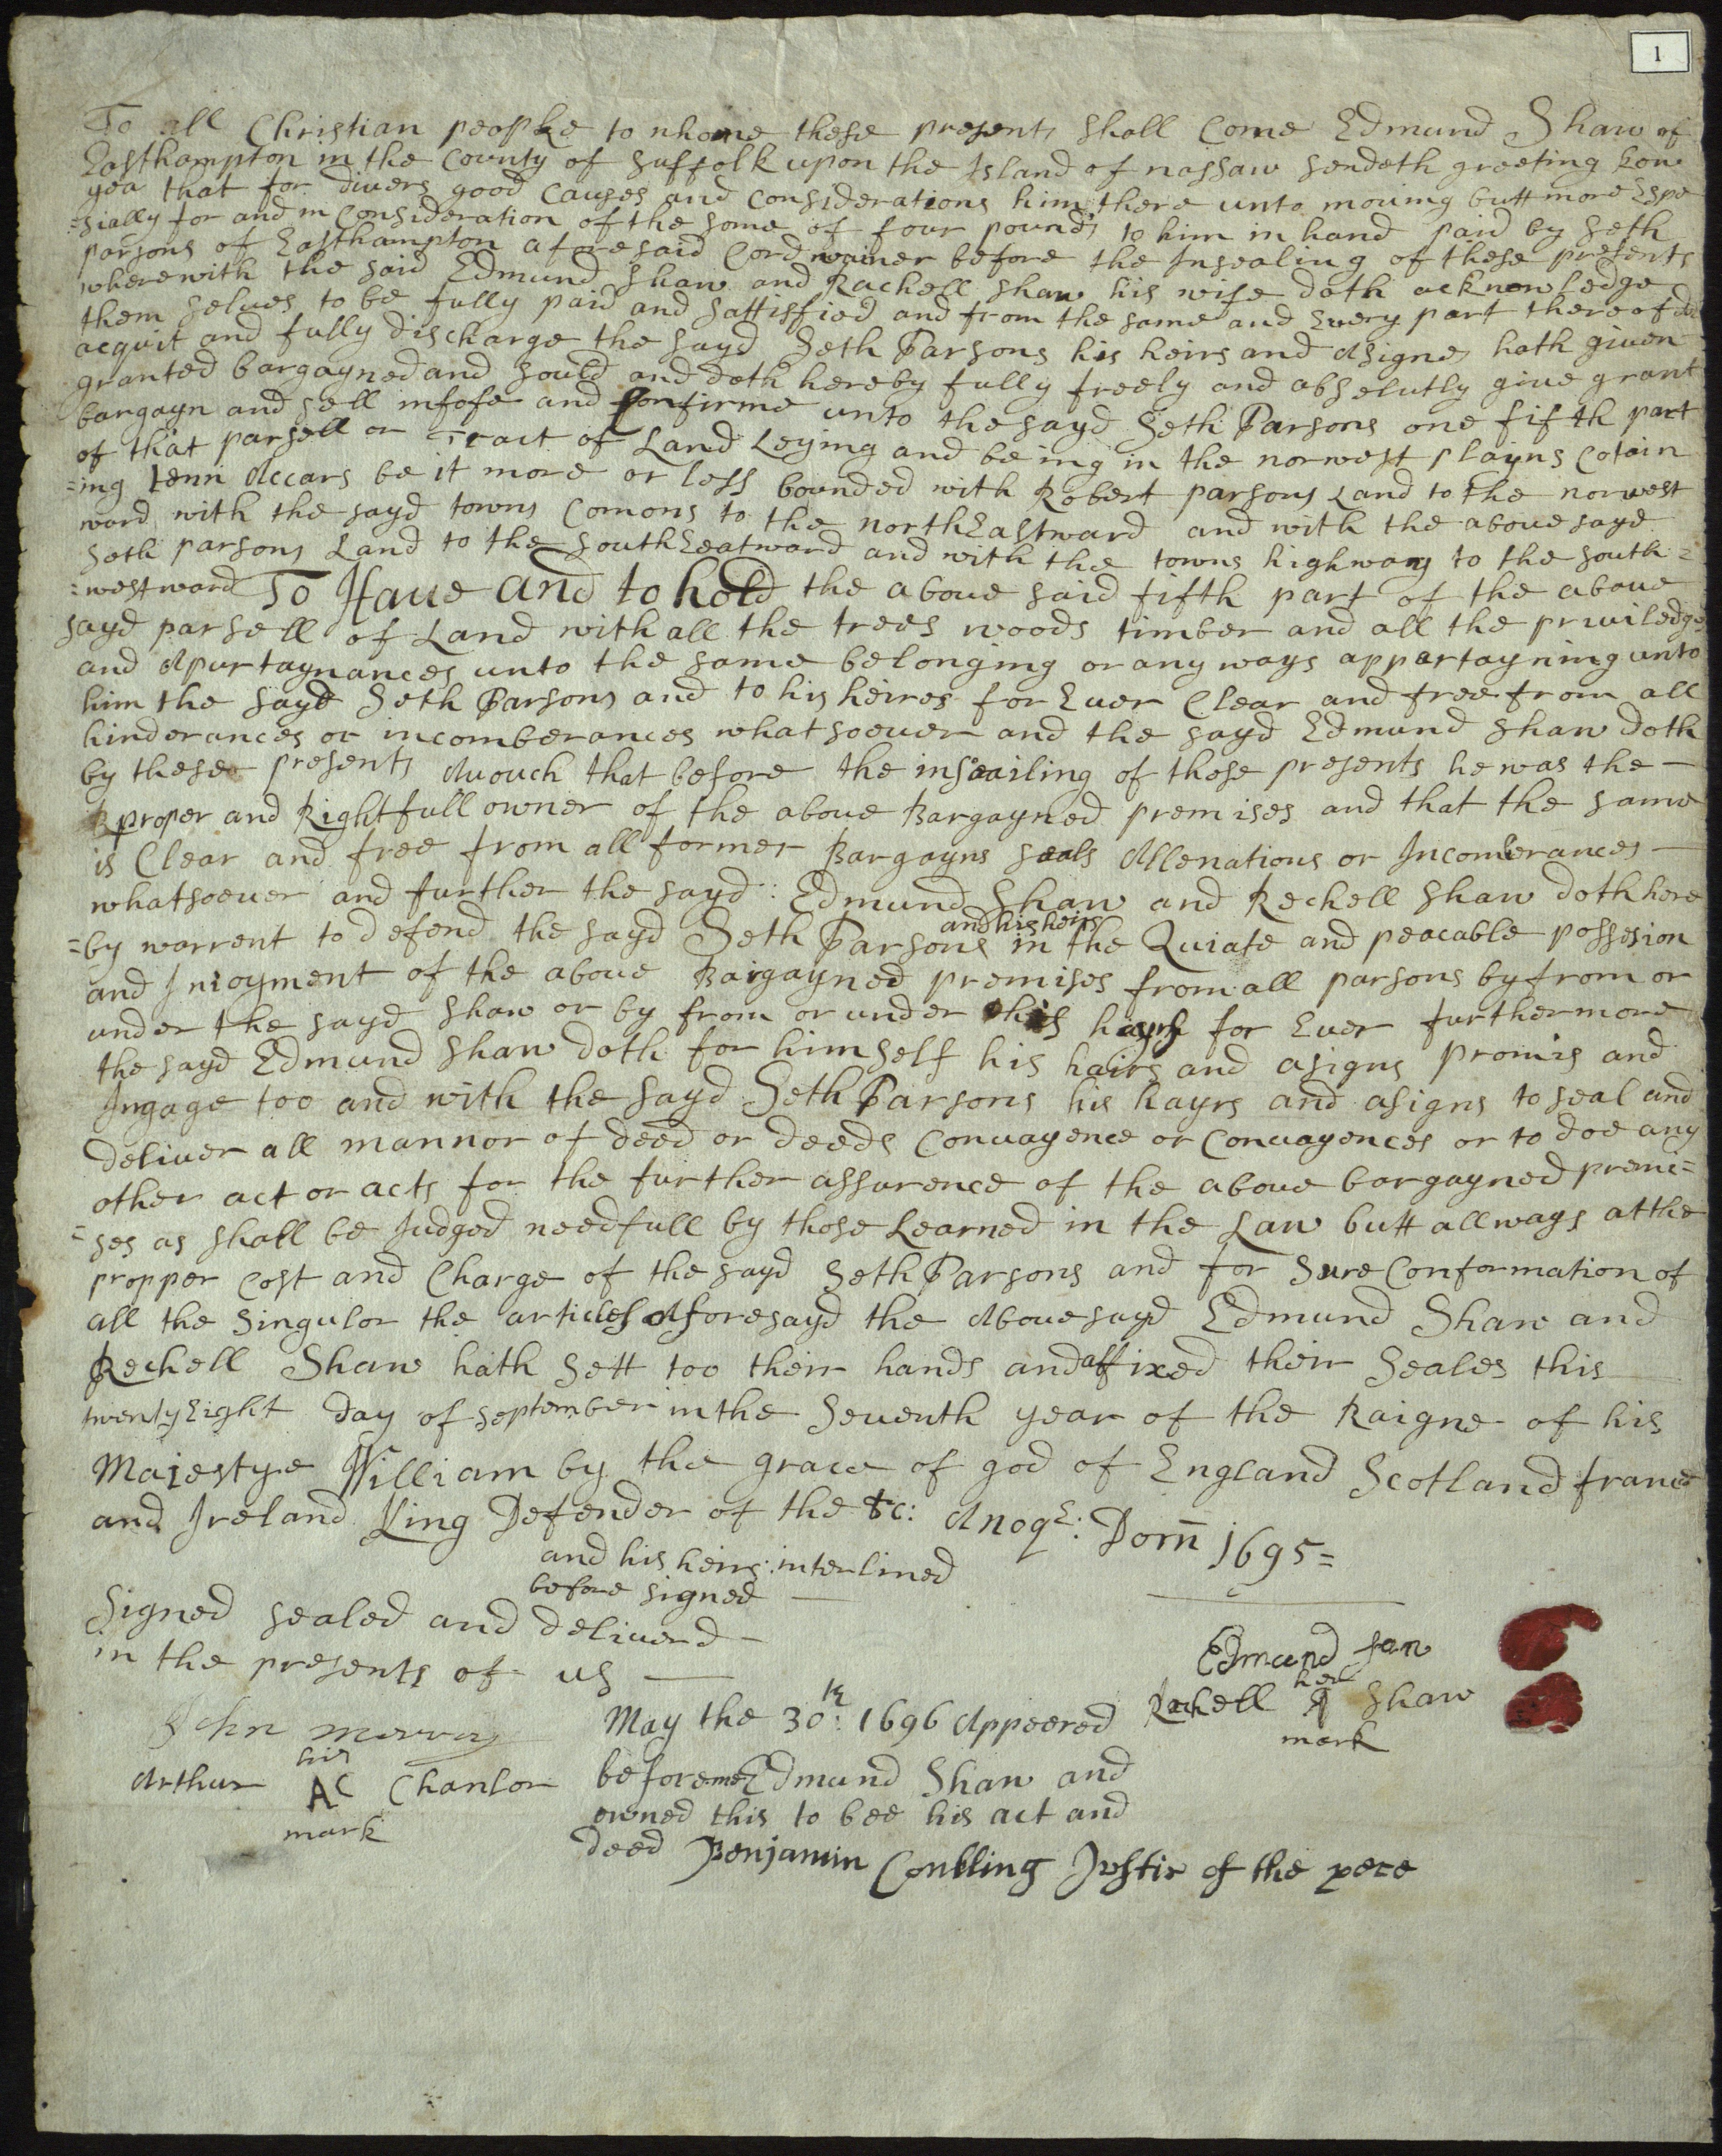 1
To all Christian people to whome these presents shall Come Edmund Shaw of
Easthampton in the County of Suffolk upon the Island of nassaw sendeth greeting kow
yea that for divers good Causes and Considerations him there unto moving butt more Espe
=sially for and in Consideration of the some of four pounds to him in hand paid by Seth
parsons of Easthampton aforesaid Cordwainer before the Insealing of these presents
wherewith the said Edmund Shaw and Rachell Shaw his wife doth acknowledge
them selves to be fully paid and sattisfied and from the same and Every part thereof do
acquit and fully discharge the sayd Seth Parsons his heirs and Asignes hath given
granted bargayned and sould and doth hereby fully freely and abselutly give grant
bargayn and sell infofe and Confirme unto the sayd Seth Parsons one fifth part
of that parsell or Tract of Land Leying and being in the norwest playns Cotain
=ing tenn Accars be it more or less bounded with Robert parsons Land to the norwest
ward with the sayd towns Comons to the northEastward and with the abovesayd
Seth parsons Land to the SouthEeatward and with the towns highway to the south=
=westward To Have and to hold the above said fifth part of the above
sayd parsell of Land with all the trees woods timber and all the priviledges
and Apurtaynances unto the same belonging or any ways appartayning unto
him the sayd Seth Parsons and to his heires for Ever Clear and free from all
hinderances or incomberances whatsoever and the sayd Edmund Shaw doth
by these presents Avouch that before the insealing of those presents he was the —
proper and Rightfull owner of the above Bargayned premises and that the same
is Clear and free from all former Bargayns seals Allenations or Incomberances —
whatsoever and further the sayd : Edmund Shaw and Rechell Shaw doth here
and his heirs
=by warrent to defend the sayd Seth Parsons in the Quiate and peacable possesion
and Inioyment of the above Bargayned premises from all parsons by from or
under the sayd Shaw or by from or under his hayrs for Ever furthermore
the sayd Edmund Shaw doth for himself his hairs and asigns promis and
Ingage too and with the sayd Seth Parsons his hayrs and asigns to seal and
deliver all mannor of deed or deeds Convayence or Convayences or to doe any
other act or acts for the further assurence of the above bargayned premi=
=ses as shall be Judged needfull by those Learned in the Law butt allways at the
propper Cost and Charge of the sayd Seth Parsons and for Sure Conformation of
all the Singulor the articles Aforesayd the Abovesayd Edmund Shaw and
Rechell Shaw hath Sett too their hands and affixed their Seales this
twentyEight day of September in the Seventh year of the Raigne of his
Majestye William by the grace of god of England Scotland france
and Ireland King Defender of the &c: Anoqe: Dom 1695=
and his heirs : interlined
before signed —
Signed sealed and deliverd —
in the presents of us —
Edmund San
her
Rachell Shaw
mark
John
his
Arthur AC Chanlor
mark
May the 30th: 1696 Appeered
before me Edmund Shaw and
owned this to bee his act and
deed Benjamin Conkling Jvstis of the pece